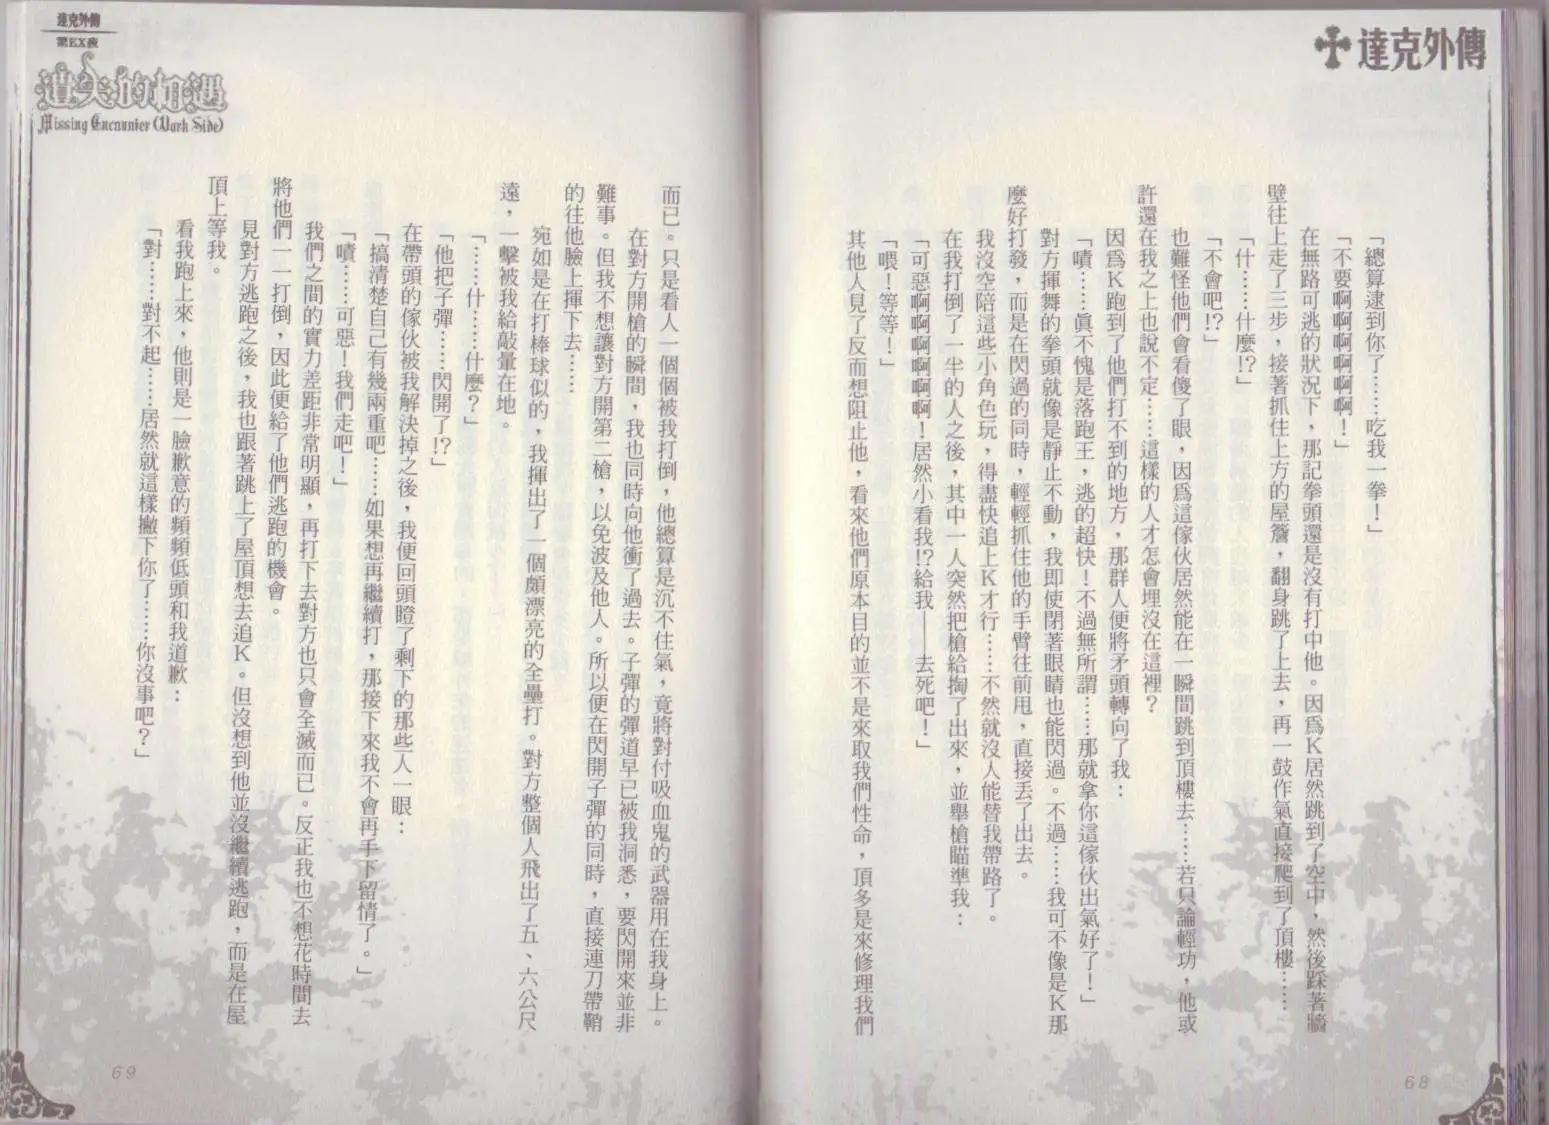 達克外傳
「總算逮到你了……吃我一拳！」
「不要啊啊啊啊啊啊！」
在無路可逃的狀況下，那記拳頭還是沒有打中他。因爲K居然跳到了空中，然後踩著牆
壁往上走了三步，接著抓住上方的屋簷，翻身跳了上去，再一鼓作氣直接爬到了頂樓……
「什……什麼!?」
「不會吧!?」
也難怪他們會看傻了眼，因爲這傢伙居然能在一瞬間跳到頂樓去……若只論輕功，他或
許還在我之上也說不定……這樣的人才怎會埋沒在這裡？
因爲K跑到了他們打不到的地方，那群人便將矛頭轉向了我：
「嘖……眞不愧是落跑王，逃的超快！不過無所謂……那就拿你這傢伙出氣好了！」
對方揮舞的拳頭就像是靜止不動，我即使閉著眼睛也能閃過。不過……我可不像是K那
麼好打發，而是在閃過的同時，輕輕抓住他的手臂往前甩，直接丟了出去。
我沒空陪這些小角色玩，得盡快追上K才行……不然就沒人能替我帶路了。
在我打倒了一半的人之後，其中一人突然把槍給掏了出來，並舉槍瞄準我：
「可惡啊啊啊啊啊啊！居然小看我!?給我——去死吧！」
「喂！等等！」
其他人見了反而想阻止他，看來他們原本目的並不是來取我們性命，頂多是來修理我們
68
達克外傳
第EX夜
遺失的相遇
Missing Encounter (Dark Side)
而已。只是看人一個個被我打倒，他總算是沉不住氣，竟將對付吸血鬼的武器用在我身上。
在對方開槍的瞬間，我也同時向他衝了過去。子彈的彈道早已被我洞悉，要閃開來並非
難事。但我不想讓對方開第二槍，以免波及他人。所以便在閃開子彈的同時，直接連刀帶鞘
的往他臉上揮下去……
宛如是在打棒球似的，我揮出了一個頗漂亮的全壘打。對方整個人飛出了五、六公尺
遠，一擊被我給敲暈在地。
「……什……什麼？」
「他把子彈……閃開了!?」
在帶頭的傢伙被我解決掉之後，我便回頭瞪了剩下的那些人一眼：
「搞清楚自己有幾兩重吧……如果想再繼續打，那接下來我不會再手下留情了。」
「嘖……可惡！我們走吧！」
我們之間的實力差距非常明顯，再打下去對方也只會全滅而已。反正我也不想花時間去
將他們一一打倒，因此便給了他們逃跑的機會。
見對方逃跑之後，我也跟著跳上了屋頂想去追K。但沒想到他並沒繼續逃跑，而是在屋
頂上等我。
看我跑上來，他則是一臉歉意的頻頻低頭和我道歉：
「對……對不起……居然就這樣撇下你了……你沒事吧？」
69